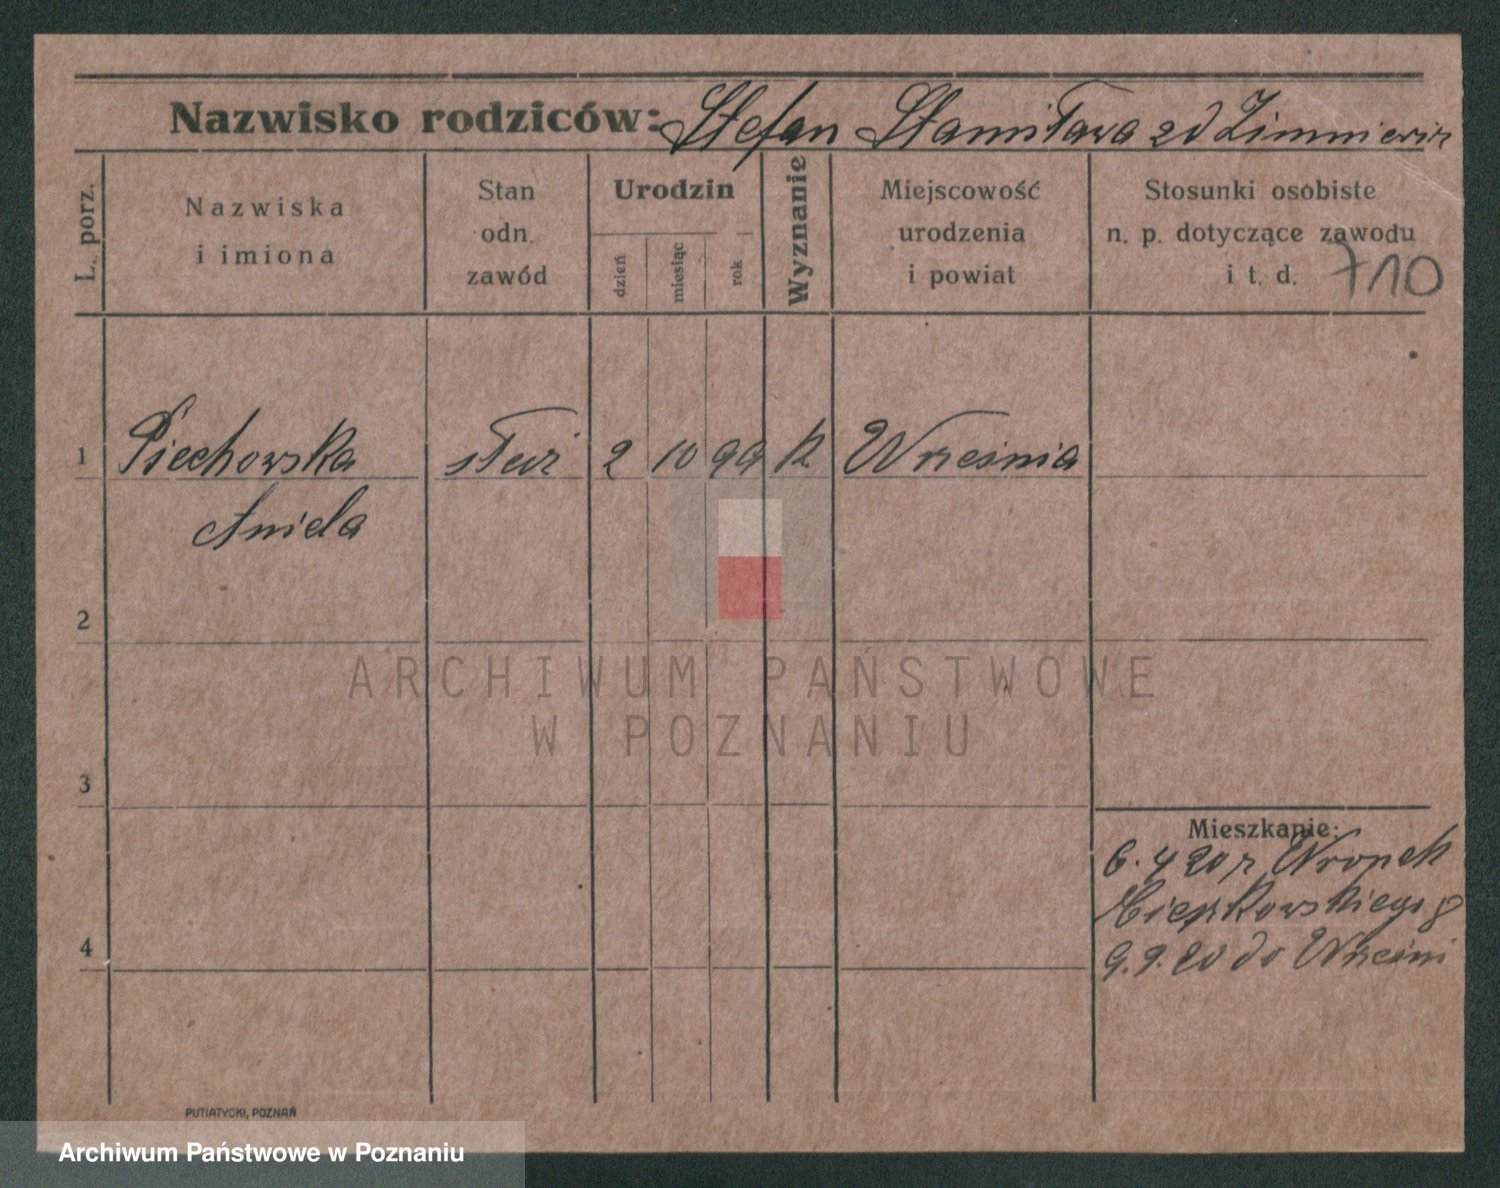 Nazwisko rodziców: Stefan Stanisława zd Zimniewicz
L. porz.
Nazwiska i imiona
Stan odn. zawód
Urodzin
dzień
miesiąc
rok
Wyznanie
Miejscowość urodzenia i powiat
Stosunki osobiste n. p. dotyczące zawodu i t. d.
710
1 Piechowska służ 2 10 99 k Września
Aniela
2
ARCHIWUM PAŃSTWOWE
W POZNANIU
3
Mieszkanie:
6. 4 20 r
8
4
9. 9. 20 do Wrześni
PUTIATYCKI, POZNAŃ
Archiwum Państwowe w Poznaniu